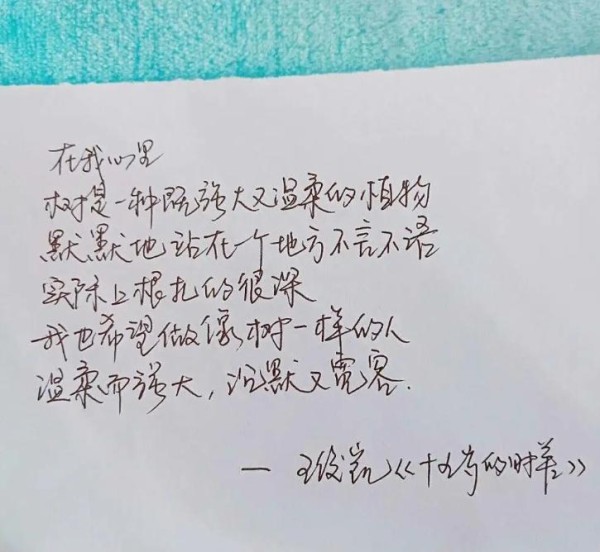 在我心里
树是一种既强大又温柔的植物
默默地站在一个地方不言不语
实际上根扎的很深
我也希望做像树一样的人
温柔而强大，沉默又宽容.
— 王俊凯《十五岁的时差》